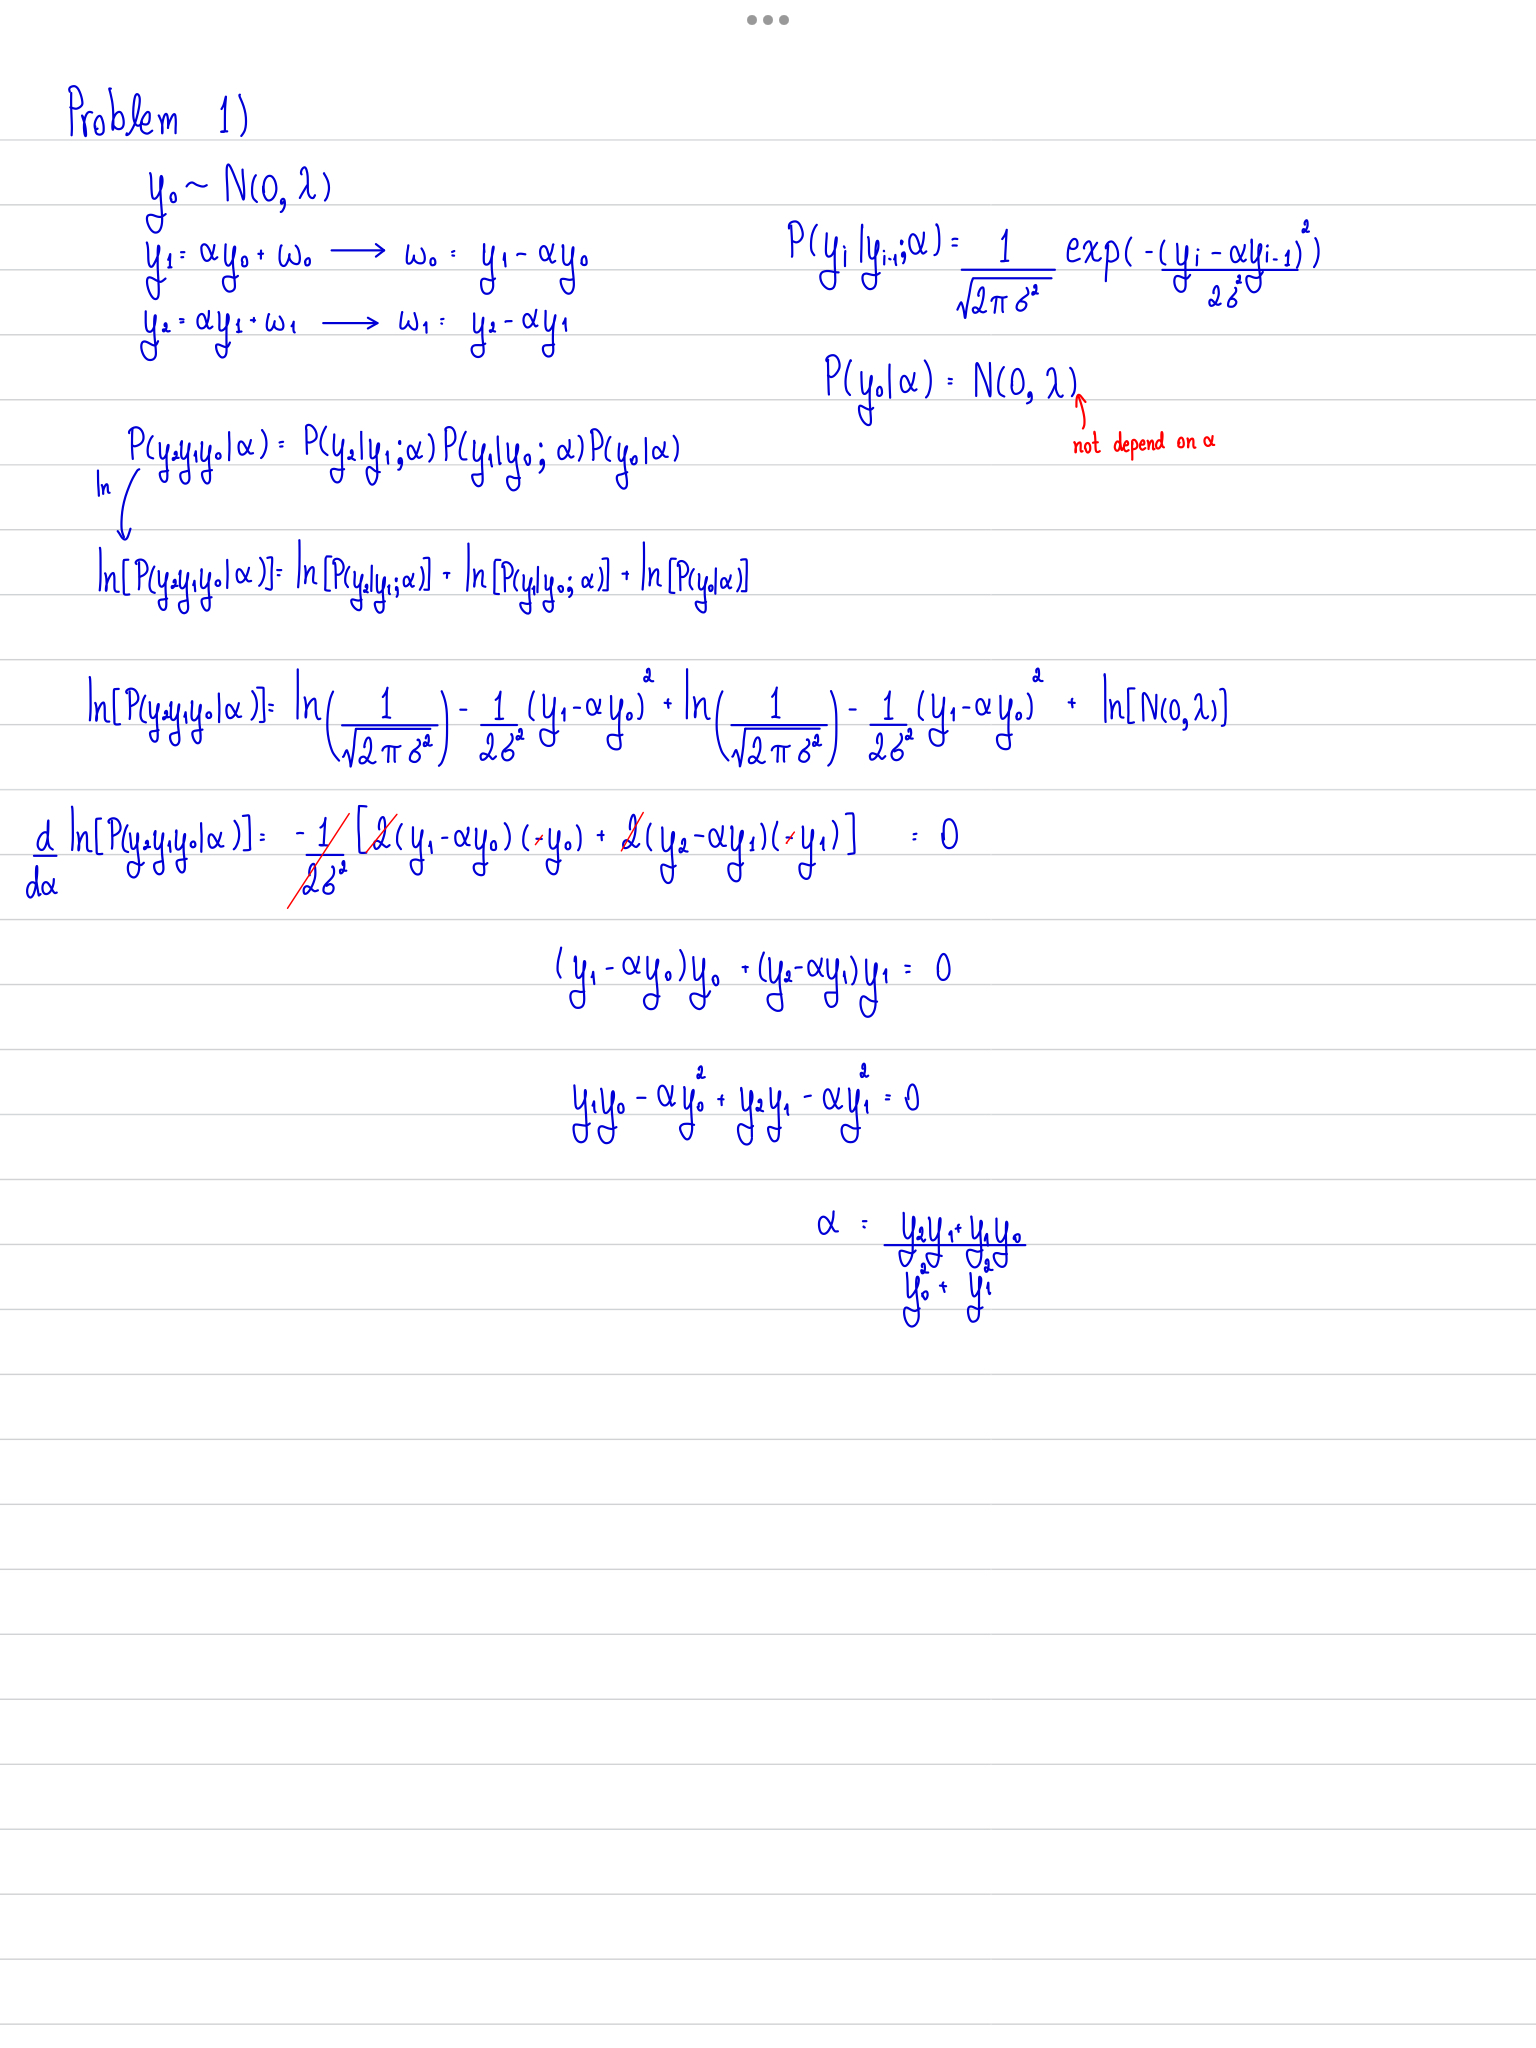 Problem 1)
y₀ ~ N(0, λ)
y₁ = αy₀ + ω₀ ⟶ ω₀ = y₁ - αy₀
y₂ = αy₁ + ω₁ ⟶ ω₁ = y₂ - αy₁
P(yᵢ|yᵢ₋₁;α) = 1/√(2πσ²) exp(-(yᵢ - αyᵢ₋₁)²/2σ²)
P(y₀|α) = N(0, λ)
not depend on α
P(y₂y₁y₀|α) = P(y₂|y₁;α)P(y₁|y₀;α)P(y₀|α)
ln
ln[P(y₂y₁y₀|α)] = ln[P(y₂|y₁;α)] + ln[P(y₁|y₀;α)] + ln[P(y₀|α)]
ln[P(y₂y₁y₀|α)] = ln(1/√(2πσ²)) - 1/2σ² (y₁ - αy₀)² + ln(1/√(2πσ²)) - 1/2σ² (y₁ - αy₀)² + ln[N(0,λ)]
d/dα ln[P(y₂y₁y₀|α)] = -1/2σ² [2(y₁ - αy₀)(-y₀) + 2(y₂ - αy₁)(-y₁)] = 0
(y₁ - αy₀)y₀ + (y₂ - αy₁)y₁ = 0
y₁y₀ - αy₀² + y₂y₁ - αy₁² = 0
α = (y₂y₁ + y₁y₀)/(y₀² + y₁²)